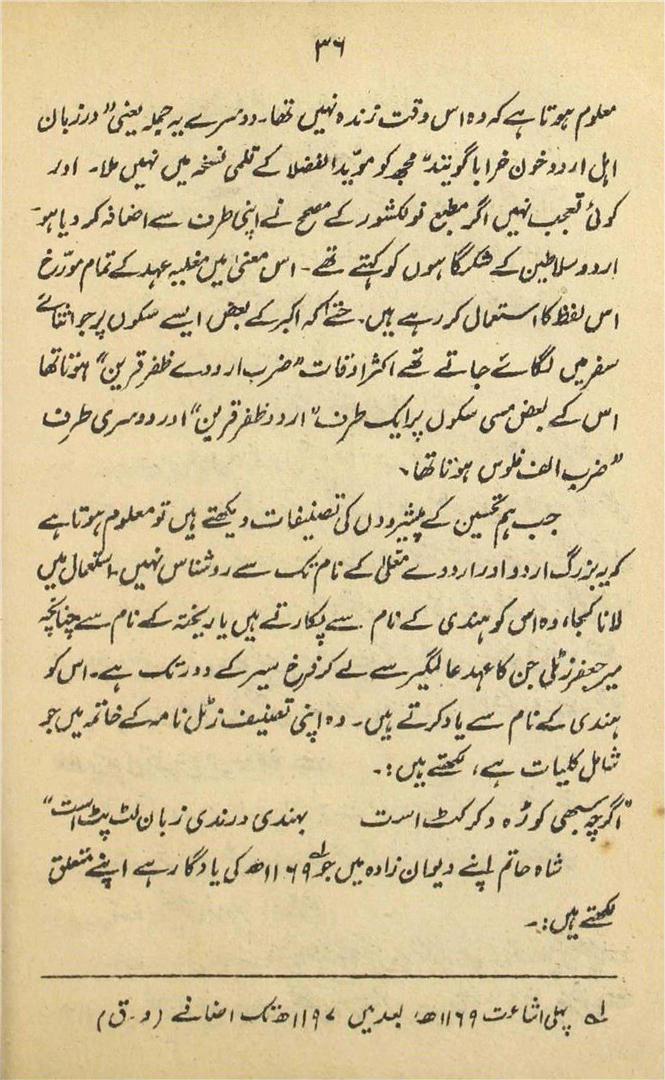 ۳۶
معلوم ہوتا ہے کہ وہ اس وقت زندہ نہیں تھا۔ دوسرے یہ جملہ یعنی ”در زبان
اہل اردو خون خرابا گویند“ مجھ کو مویّد الفضلا کے قلمی نسخہ میں نہیں ملا۔ اور
کوئی تعجب نہیں اگر مطبع نولکشور کے مصحح نے اپنی طرف سے اضافہ کر دیا ہو۔
اردو سلاطین کے لشکرگاہوں کو کہتے تھے۔ اس معنیٰ میں مغلیہ عہد کے تمام مورّخ
اس لفظ کا استعمال کر رہے ہیں۔ حتےٰ کہ اکبر کے بعض ایسے سکوں پر جو اثنائے
سفر میں لگائے جاتے تھے اکثر اوقات ”ضرب اردوے ظفر قرین“ ہوتا تھا
اس کے بعض مسی سکوں پر ایک طرف ”اردو ظفر قرین“ اور دوسری طرف
”ضرب الف فلوس ہوتا تھا۔
جب ہم تحسین کے پیشرووں کی تصنیفات دیکھتے ہیں تو معلوم ہوتا ہے
کہ یہ بزرگ اردو اور اردوے معلّیٰ کے نام تک سے روشناس نہیں۔ استعمال میں
لانا کجا، وہ اس کو ہندی کے نام سے پکارتے ہیں یا ریختہ کے نام سے چنانچہ
میر جعفر زٹلی جن کا عہد عالمگیر سے لے کر فرخ سیر کے دور تک ہے۔ اس کو
ہندی کے نام سے یاد کرتے ہیں۔ وہ اپنی تصنیف زٹل نامہ کے خاتمہ میں جو
شامل کلیات ہے، لکھتے ہیں:۔
”اگرچہ سبھی کوڑہ و کرکٹ است بہندی و رندی زبان لٹ پٹ است“
شاہ حاتم اپنے دیوان زادہ میں جو ۱۱۶۹ھ کی یادگار ہے اپنے متعلق
لکھتے ہیں:۔
لہ پہلی اشاعت ۱۱۶۹ھ، بعد میں ۱۱۹۷ھ تک اضافے (و۔ق)